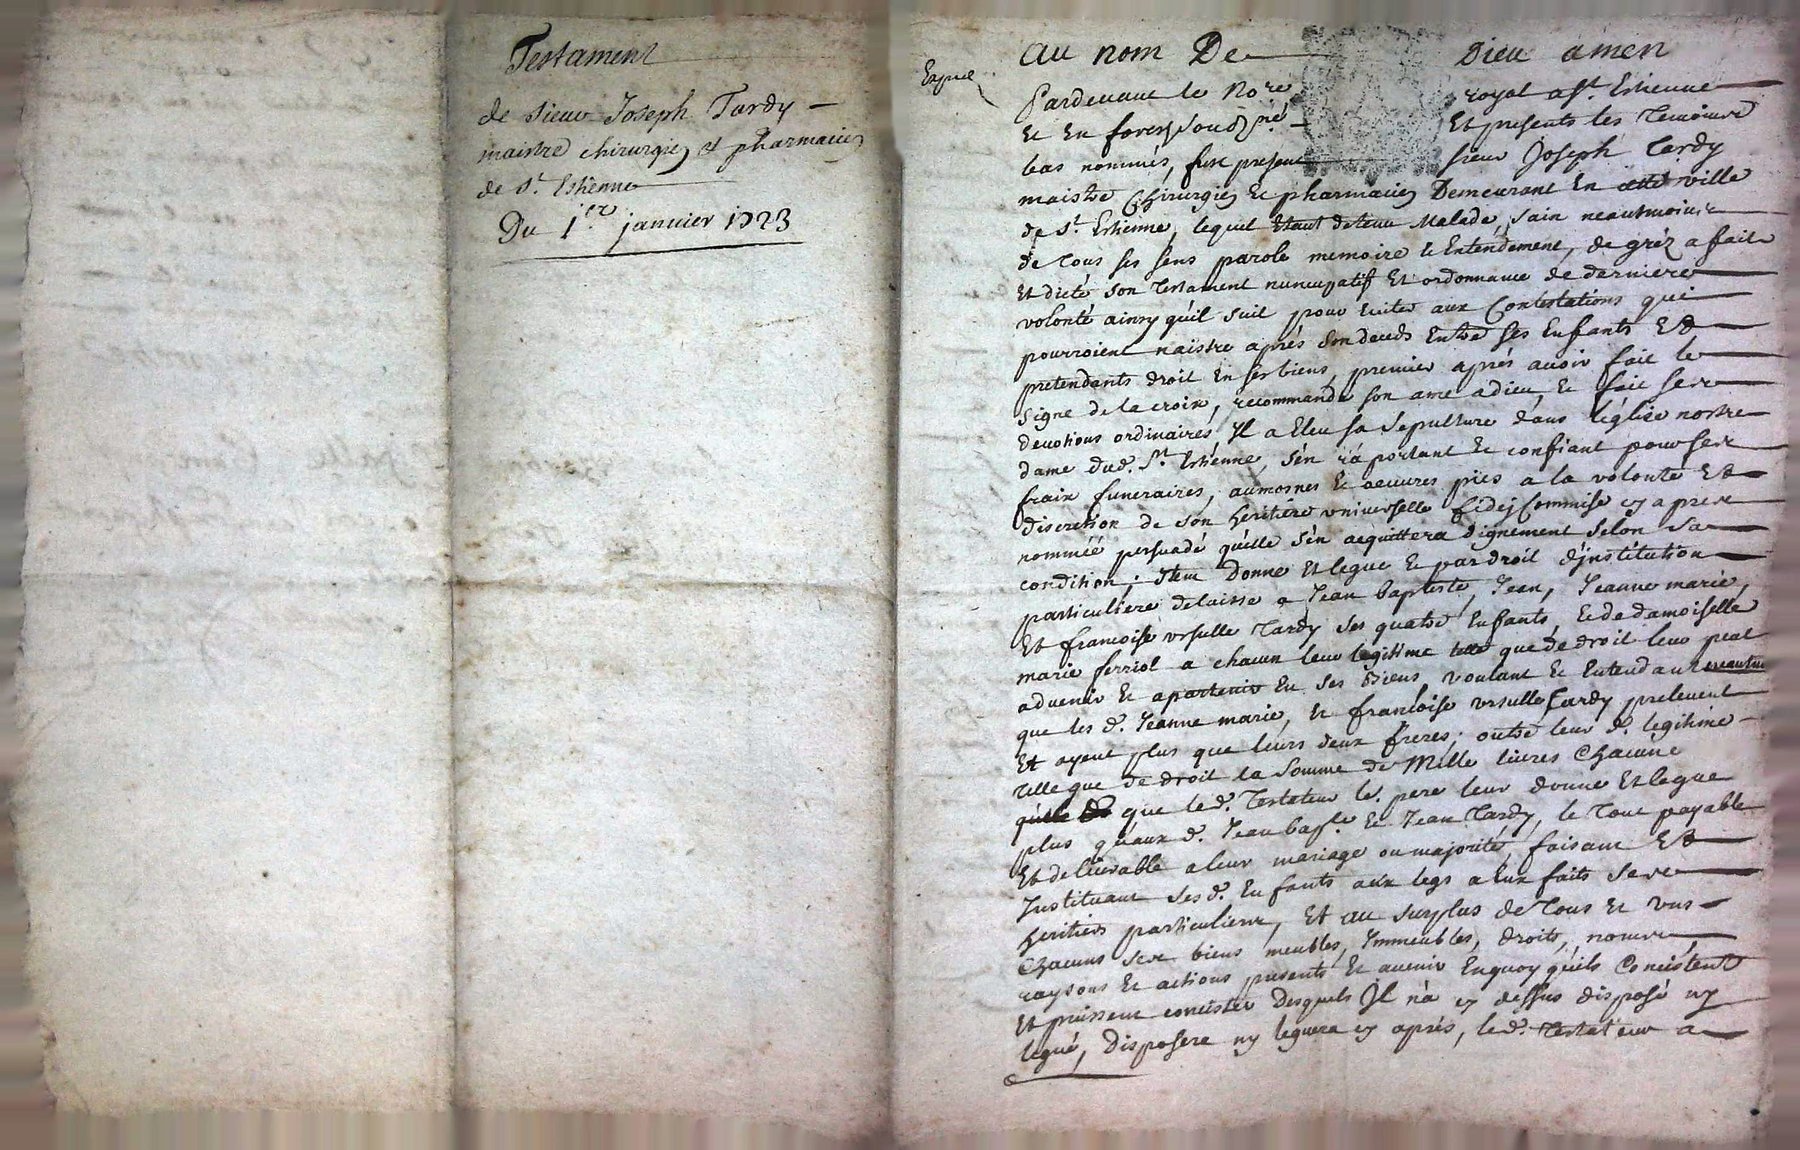 Testament
de sieur Joseph Tardy
maistre chirurgien et pharmacien
de St. Estienne
Du 1er janvier 1723
Expié
au nom De Dieu amen
Pardevant le Nore royal a St. Estienne
Et En forest sousné Et presents les Temoins
bas nommés, fust present sieur Joseph Tardy
maistre Chirurgien Et pharmacien Demeurant En cette ville
de St. Estienne, lequel Etant detenu Malade, sain neautmoins
de tous ses sens parole memoire et Entendement, de gréz a fait
Et dicté son Testament nuncupatif Et ordonnance de derniere
volonté ainsy qu'il suit pour Eviter aux Contestations qui
pourroient naistre aprés son deceds Entre ses Enfants Et
pretendants droit En ses biens, premier aprés avoir fait le
signe de la croix, recommandé son ame a dieu, Et fait ses
devotions ordinaires, Il a Eleu sa sepulture dans l'église nostre
dame dud. St. Estienne, s'en raportant Et confiant pour ses
fraix funeraires, aumosnes Et oeuvres pies a la volonté Et
discretion de son heritiere universelle fideicommise cy apres
nommée persuadé qu'elle s'en acquittera dignement selon sa
condition; Item Donne Et legue Et par droit d'institution
particuliere delaisse a Jean baptiste, Jean, Jeanne marie,
Et francoise ursulle Tardy ses quatre Enfants, Et de damoiselle
marie ferriol a chacun leur legitime telle que de droit leur peut
advenir Et apartenir En ses Biens voulant Et Entendant
que les d. Jeanne marie, Et francoise ursulle Tardy prelevent
Et ayent plus que leurs deux freres; outre leur d. legitime
telle que de droit la somme de Mille livres Chacune
que le d. Testateur le. pere leur donne Et legue
plus qu'aux d. Jean bapte. Et Jean Tardy, le tout payable
Et delivrable a leur mariage ou majorité, faisant Et
Instituant ses d. Enfants aux legs a Eux faits ses
heritiers particuliers, Et au surplus de tous Et uns
Chacuns ses biens meubles, Immeubles, droits, noms,
raysons Et actions presents Et avenir Enquoy qu'ils Concistent
Et puissent concister Desquels Il n'a cy dessus disposé ny
legué, Disposera ny leguera cy aprés, le d. Testateur a